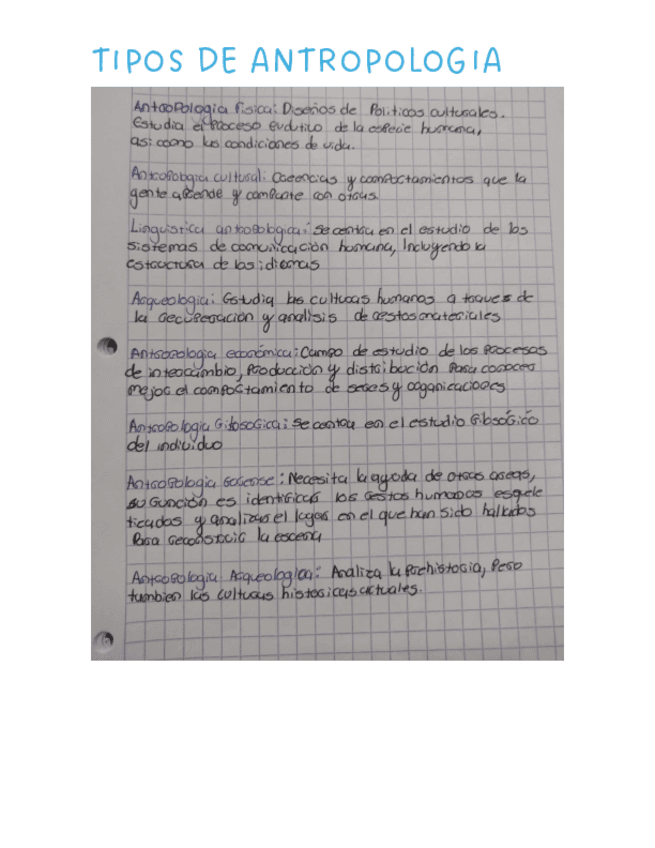 TIPOS DE ANTROPOLOGIA
Antropologia fisica: Diseños de Politicas culturales.
Estudia el Proceso evolutivo de la especie humana,
asi como las condiciones de vida.
Antropologia cultural: Creencias y comportamientos que la
gente aprende y comparte con otros
Linguistica antropologica: se centra en el estudio de los
sistemas de comunicación humana, Incluyendo la
estructura de los idiomas
Arqueologia: Estudia las culturas humanas a traves de
la recuperación y analisis de restos materiales
Antropologia económica: Campo de estudio de los Procesos
de intercambio, Producción y distribución Para conocer
mejor el comportamiento de seres y organizaciones
Antropologia filosofica: se centra en el estudio filosófico
del individuo
Antropologia forense: Necesita la ayuda de otras areas,
su función es identificar los restos humanos esquele
ticados y analizar el lugar en el que han sido hallados
Para reconstruir la escena
Antropologia Arqueologica: Analiza la Prehistoria, Pero
tambien las culturas historicas actuales.